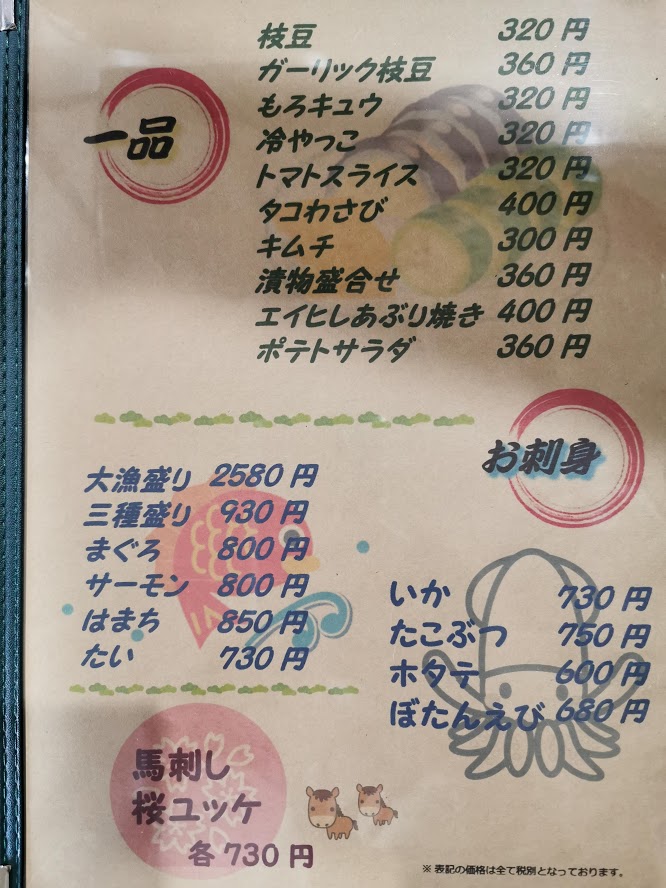 一品
枝豆 320円
ガーリック枝豆 360円
もろキュウ 320円
冷やっこ 320円
トマトスライス 320円
タコわさび 400円
キムチ 300円
漬物盛合せ 360円
エイヒレあぶり焼き 400円
ポテトサラダ 360円
お刺身
大漁盛り 2580円
三種盛り 930円
まぐろ 800円
サーモン 800円
はまち 850円
たい 730円
いか 730円
たこぶつ 750円
ホタテ 600円
ぼたんえび 680円
馬刺し
桜ユッケ
各730円
※表記の価格は全て税別となっております。